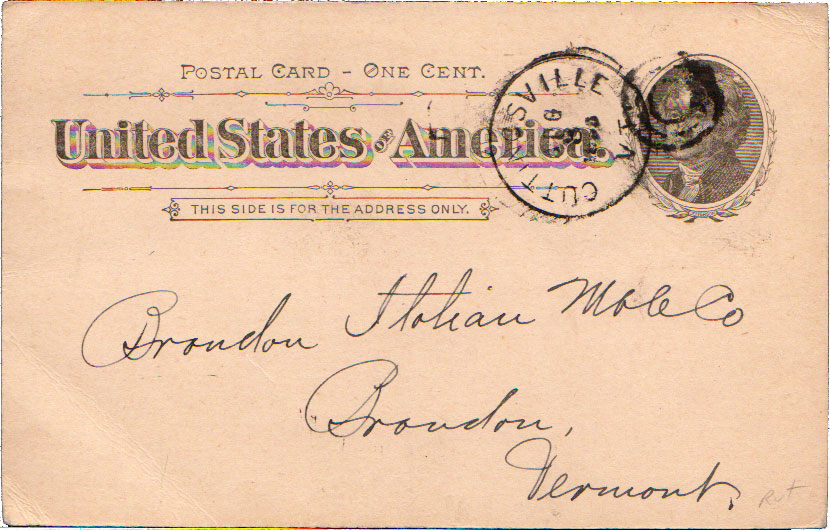 POSTAL CARD – ONE CENT.
United States OF America.
CUTTINGSVILLE
VT.
THIS SIDE IS FOR THE ADDRESS ONLY.
Brandon Italian Mble Co
Brandon,
Vermont.
Rut